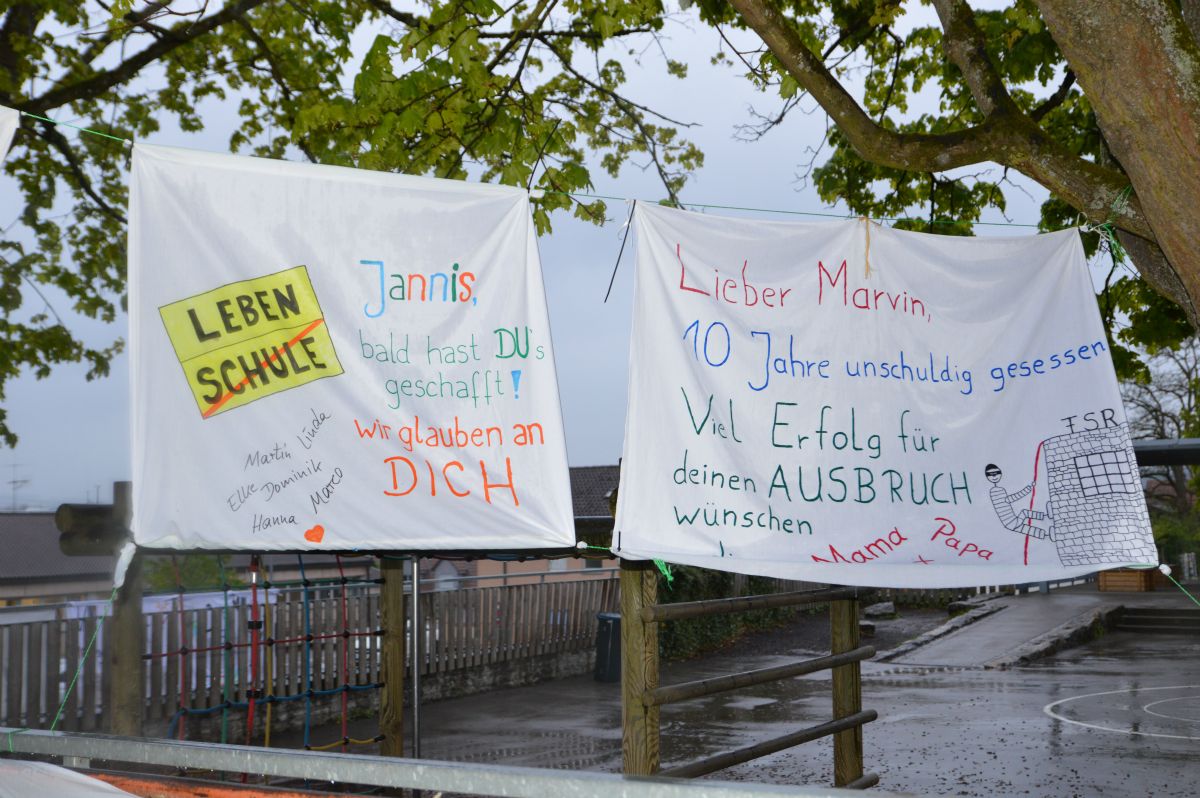 LEBEN
SCHULE
Jannis,
bald hast DU's
geschafft!
wir glauben an
DICH
Martin Linda
Elke Dominik
Hanna Marco
Lieber Marvin,
10 Jahre unschuldig gesessen
Viel Erfolg für
deinen AUSBRUCH
wünschen
Mama Papa
TSR